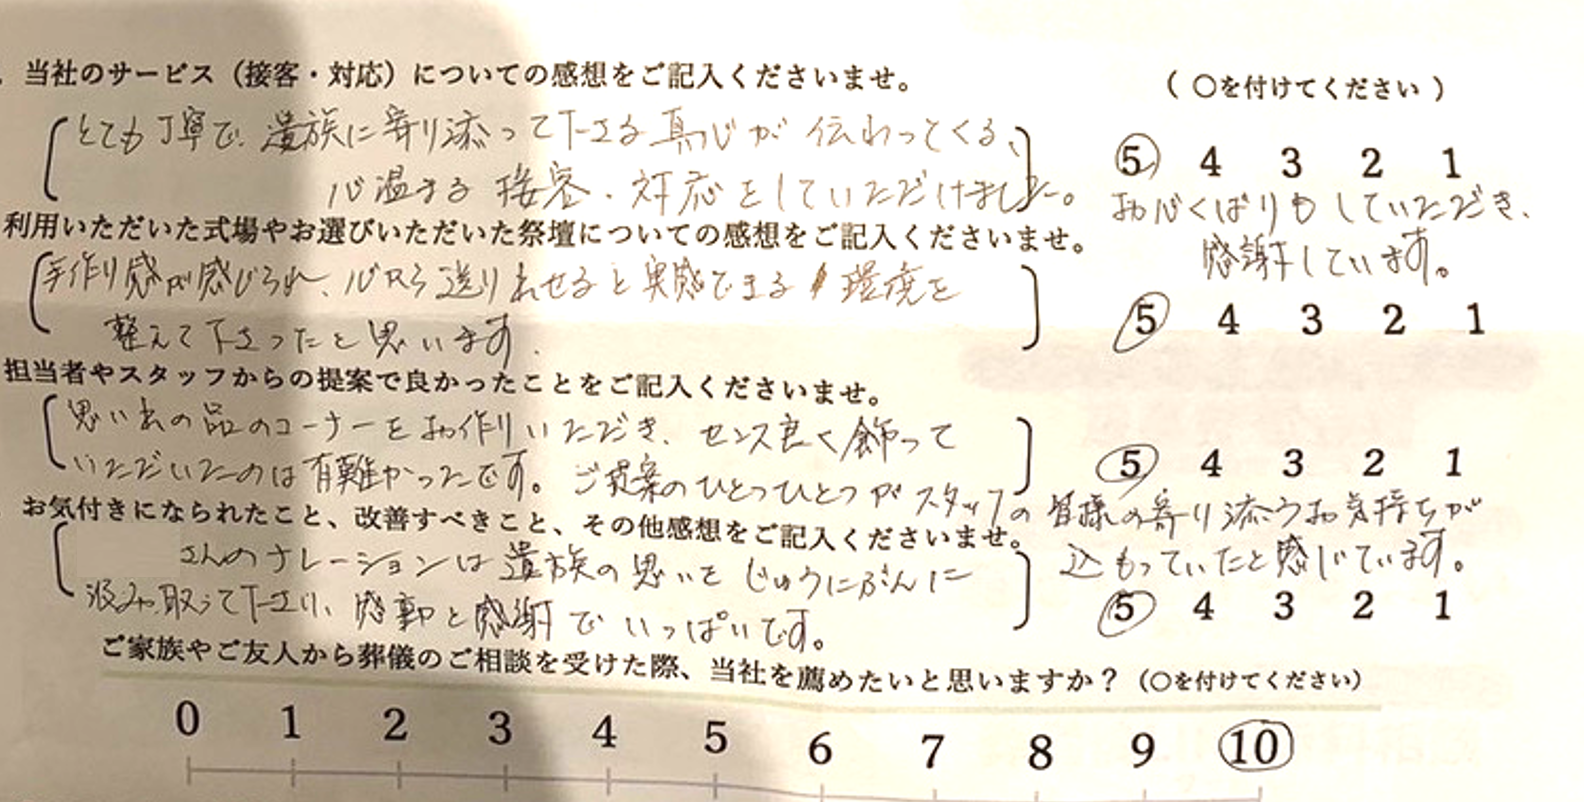 当社のサービス（接客・対応）についての感想をご記入くださいませ。
（ ○を付けてください ）
とても丁寧で、遺族に寄り添って下さる真心が伝わってくる、
心温まる接客・対応をしていただけました。
5 4 3 2 1
お心くばりもしていただき、
感謝しています。
利用いただいた式場やお選びいただいた祭壇についての感想をご記入くださいませ。
手作り感が感じられ、心から送り出せると実感できる環境を
整えて下さったと思います。
5 4 3 2 1
担当者やスタッフからの提案で良かったことをご記入くださいませ。
思い出の品のコーナーをお作りいただき、センス良く飾って
いただいたのは有難かったです。ご提案のひとつひとつがスタッフの皆様の寄り添うお気持ちが
込もっていたと感じています。
5 4 3 2 1
お気付きになられたこと、改善すべきこと、その他感想をご記入くださいませ。
さんのナレーションは遺族の思いをじゅうにぶんに
汲み取って下さり、感動と感謝でいっぱいです。
5 4 3 2 1
ご家族やご友人から葬儀のご相談を受けた際、当社を薦めたいと思いますか？（○を付けてください）
0 1 2 3 4 5 6 7 8 9 10